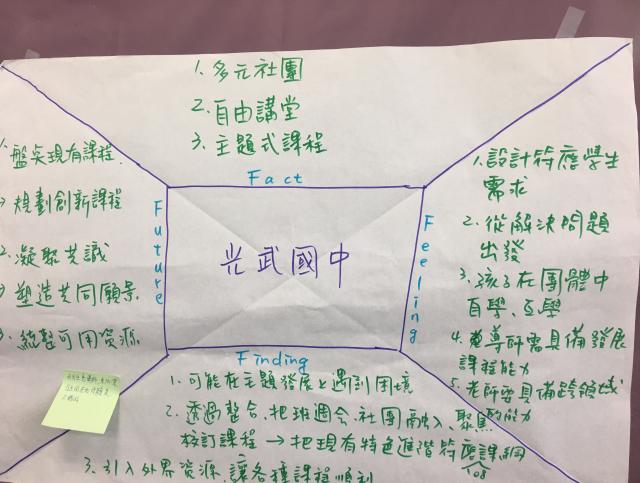 1. 多元社團
2. 自由講堂
3. 主題式課程
Fact
盤點現有課程
規劃創新課程
凝聚共識
塑造共同願景
統整可用資源
Future
光武國中
Feeling
1. 設計符應學生
需求
2. 從解決問題
出發
3. 孩子在團體中
自學、互學
4. 導師需具備發展
課程能力
5. 老師要具備跨領域
的能力
Finding
1. 可能在主題發展上遇到困境
2. 透過整合、把班週會、社團融入、聚焦
校訂課程 → 把現有特色進階符應課綱
108
3. 引入外界資源,讓各種課程順利